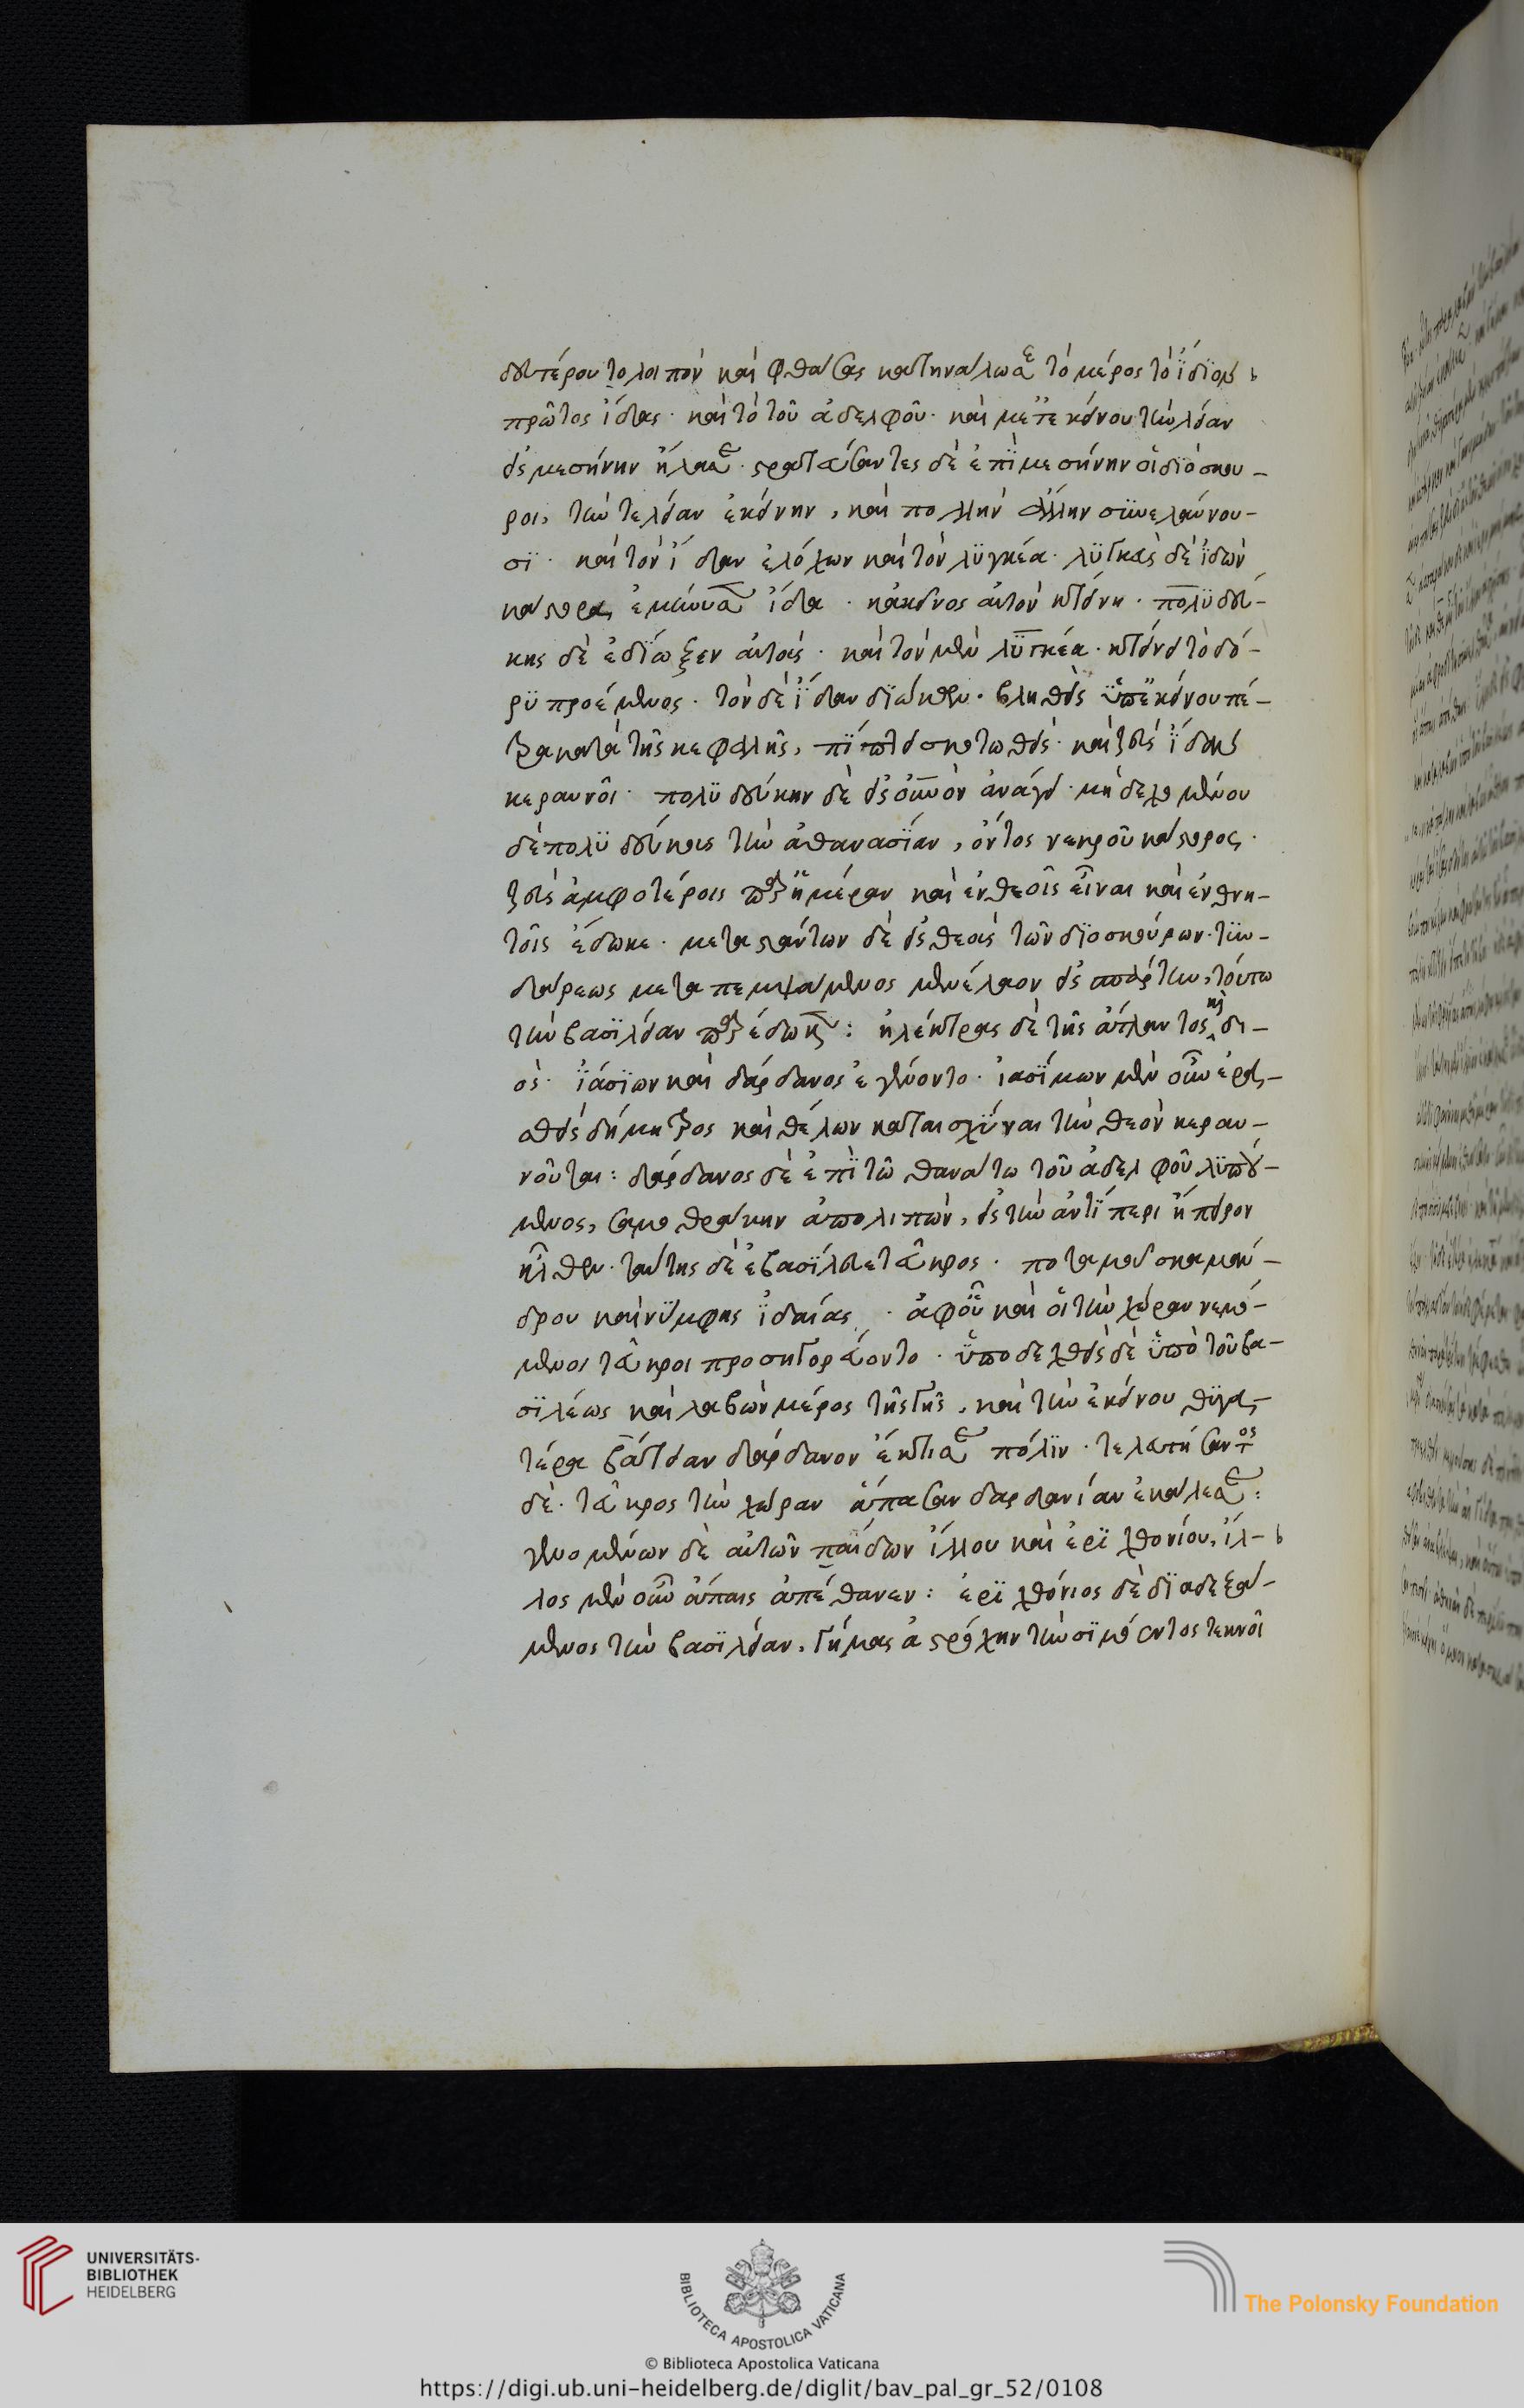 δευτέρου το λοιπόν καὶ φθάσας κατηνάλωσε τὸ μέρος τὸ ἴδιον
πρῶτος ἴδας · καὶ τὸ τοῦ ἀδελφοῦ · καὶ μετ' ἐκείνου τὴν λείαν
εἰς μεσήνην ἤλασε · στρατεύσαντες δὲ ἐπὶ μεσήνην οἱ διόσκου-
ροι, τήν τε λείαν ἐκείνην, καὶ πολλὴν ἄλλην συνελαύνου-
σι · καὶ τὸν ἴδαν ἐλόχων καὶ τὸν λυγκέα · λυγκεὺς δὲ ἰδὼν
κάστορα, ἐμήνυσεν ἴδα · κἀκεῖνος αὐτὸν κτείνει · πολυδεύ-
κης δὲ ἐδίωξεν αὐτούς · καὶ τὸν μὲν λυγκέα · κτείνει τὸ δό-
ρυ προέμενος · τὸν δὲ ἴδαν διώκων · βληθεὶς ὑπ' ἐκείνου πέ-
τρα κατὰ τῆς κεφαλῆς, πίπτει σκοτωθείς · καὶ ζεὺς ἴδαν
κεραυνοῖ · πολυδεύκην δὲ εἰς οὐρανὸν ἀνάγει · μὴ δεχομένου
δὲ πολυδεύκους τὴν ἀθανασίαν, ὄντος νεκροῦ κάστορος ·
ζεὺς ἀμφοτέροις παρ' ἡμέραν καὶ ἐν θεοῖς εἶναι καὶ ἐν θνη-
τοῖς ἔδωκε · μεταστάντων δὲ εἰς θεοὺς τῶν διοσκούρων · τυν-
δάρεως μεταπεμψάμενος μενέλαον εἰς σπάρτην, τούτω
τὴν βασιλείαν παρέδωκεν : ἠλέκτρας δὲ τῆς ἄτλαντος καὶ δι-
ός · ἰάσιων καὶ δάρδανος ἐγένοντο · ἰασίμων μὲν οὖν ἐρα-
σθεὶς δήμητρος καὶ θέλων καταισχῦναι τὴν θεὸν κεραυ-
νοῦται : δάρδανος δὲ ἐπὶ τῶ θανάτω τοῦ ἀδελφοῦ λυπού-
μενος, σαμοθράκην ἀπολιπών, εἰς τὴν ἀντίπερι ἤπειρον
ἦλθεν · ταύτης δὲ ἐβασίλευε τεῦκρος · ποταμοῦ σκαμάν-
δρου καὶ νύμφης ἰδαίας · ἀφ' οὗ καὶ οἱ τὴν χώραν νεμό-
μενοι τεῦκροι προσηγορεύοντο · ὑποδεχθεὶς δὲ ὑπὸ τοῦ βα-
σιλέως καὶ λαβὼν μέρος τῆς γῆς, καὶ τὴν ἐκείνου θυγα-
τέρα βάτειαν δάρδανον ἔκτισε πόλιν · τελευτήσαντος
δὲ · τεῦκρος τὴν χώραν ἅπασαν δαρδανίαν ἐκάλεσε :
γενομένων δὲ αὐτῶν παίδων ἴλλου καὶ ἐριχθονίου, ἴλ-
λος μὲν οὖν ἄπαις ἀπέθανεν : ἐριχθόνιος δὲ διαδεξά-
μενος τὴν βασιλείαν, γήμας ἀστρόχην τὴν σιμόεντος τεκνοῖ
UNIVERSITÄTS-
BIBLIOTHEK
HEIDELBERG
BIBLIOTECA APOSTOLICA VATICANA
The Polonsky Foundation
© Biblioteca Apostolica Vaticana
https://digi.ub.uni-heidelberg.de/diglit/bav_pal_gr_52/0108